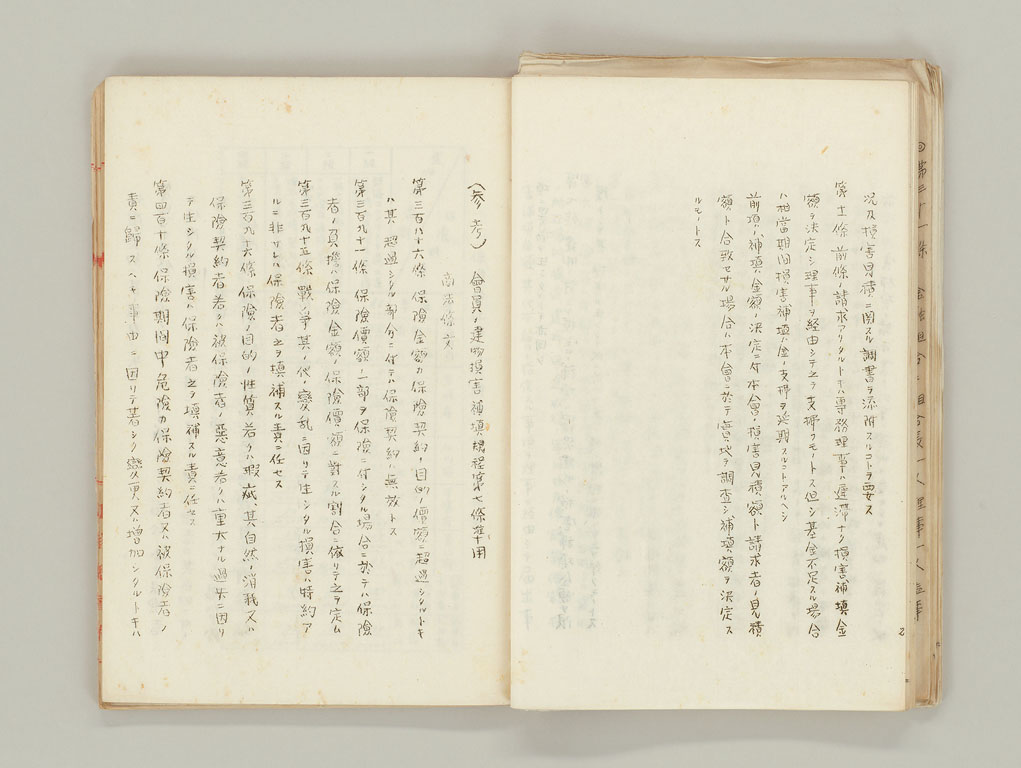 況及損害見積ニ関スル調書ヲ添附スルコトヲ要ス
第十一条 前條ノ請求アリタルトキハ専務理事ハ遅滞ナク損害補填金
額ヲ決定シ理事ヲ経由シテ之ヲ支拂フモノトス但シ基金不足スル場合
ハ相當期間損害補填金ノ支拂ヲ延期スルコトアルヘシ
前項ノ補填金額ノ決定ニ付本會ノ損害見積額ト請求者ノ見積
額ト合致セサル場合ハ本會ニ於テ實地ヲ調査シ補填額ヲ決定ス
ルモノトス
2
(参考) 會員ノ建物損害補填規程第七條準用
商法條文
第三百八十六條 保險金額カ保險契約ノ目的ノ價額ニ超過シタルトキ
ハ其ノ超過シタル部分ニ付テハ保險契約ハ無效トス
第三百九十一條 保險價額ノ一部ヲ保險ニ付シタル場合ニ於テハ保險
者ノ負擔ハ保險金額ノ保險價額ニ對スル割合ニ依リテ之ヲ定ム
第三百九十五條 戰爭其ノ他ノ變乱ニ因リテ生シタル損害ハ特約ア
ルニ非サレハ保險者之ヲ填補スル責ニ任セス
第三百九十六條 保險ノ目的ノ性質若クハ瑕疵其自然ノ消耗又ハ
保險契約者若クハ被保險者ノ惡意若クハ重大ナル過失ニ因リ
テ生シタル損害ハ保險者之ヲ填補スル責ニ任セス
第四百十條 保險期間中危險カ保險契約者又ハ被保險者ノ
責ニ歸スヘキ事由ニ因リテ著シク變更又ハ増加シタルトキハ